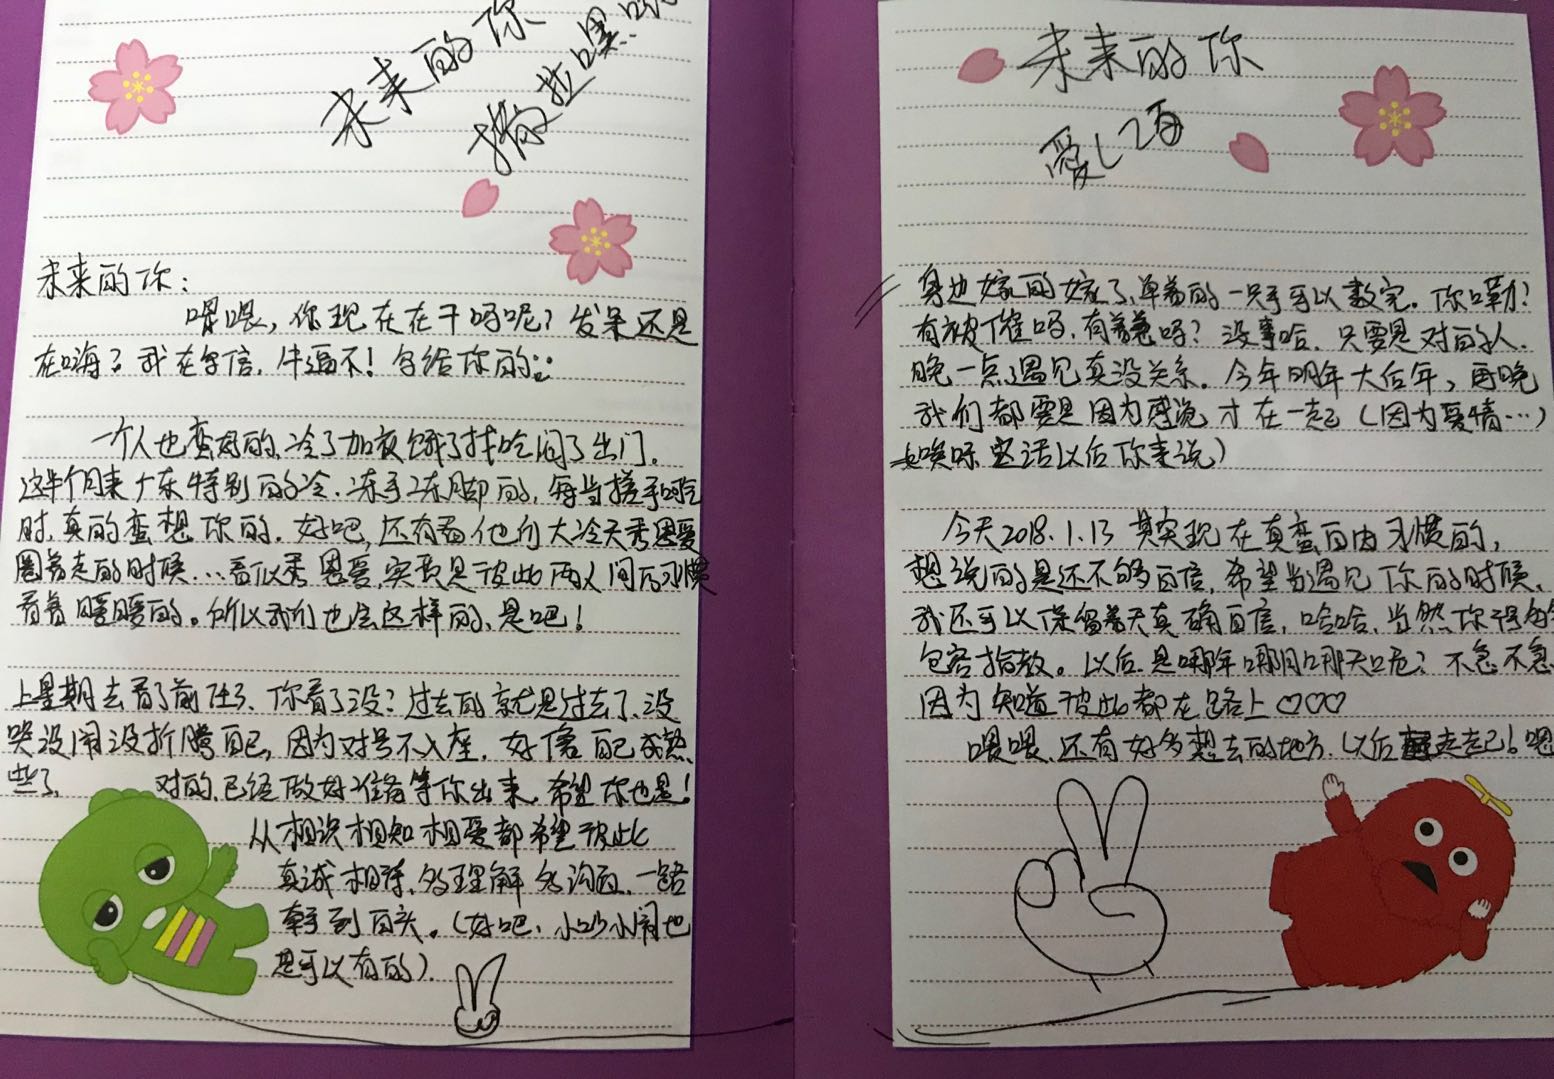 未来的你
撒拉嘿
未来的你：
喂喂，你现在在干吗呢？发呆还是
在嗨？我在写信，牛逼不！写给你的
一个人也蛮好的，冷了加衣饿了找吃闷了出门。
这半个月来广东特别的冷，冻手冻脚的，每当搓手吃
时，真的蛮想你的。好吧，还有看他们大冷天秀恩爱
圈着走的时候…看似秀恩爱，实质是彼此两人间的习惯
看着暖暖的。所以我们也会这样的，是吧！
上星期去看了前任3，你看了没？过去的就是过去了，没
哭没闹没折腾自己，因为对号不入座，好像自己成熟
些了
对的，已经做好准备等你出来，希望你也是！
从相识相知相爱都希望彼此
真诚相待，多理解多沟通，一路
牵手到白头。（好吧，小吵小闹也
是可以有的）
未来的你
爱し
身边嫁的嫁了，单着的一只手可以数完。你嘞？
有被催吗，有着急吗？没事哈，只要是对的人，
晚一点遇见真没关系。今年明年大后年，再晚
我们都要是因为感觉才在一起（因为爱情…）
唉呀这话以后你来说）
今天2018.1.13 其实现在真蛮自由习惯的，
想说的是还不够自信，希望当遇见你的时候，
我还可以保留着天真确自信，哈哈，当然你得多
包容指教。以后是哪年哪月哪天呢？不急不急
因为知道彼此都在路上♡♡♡
喂喂，还有好多想去的地方，以后走起！嗯